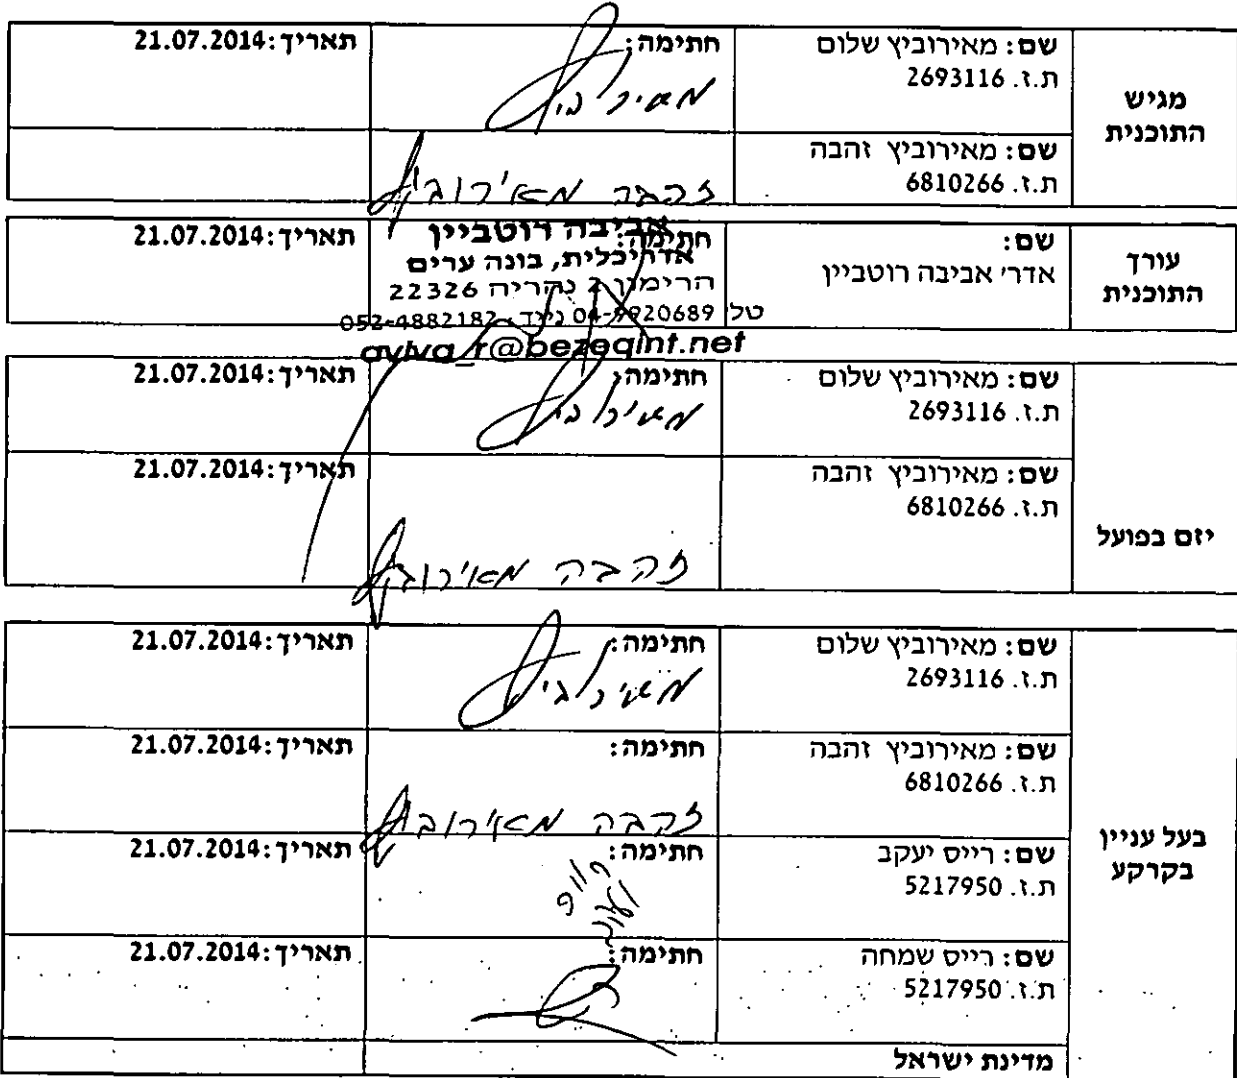 מגיש
התוכנית
שם: מאירוביץ שלום
ת.ז. 2693116
חתימה:
תאריך: 21.07.2014
שם: מאירוביץ זהבה
ת.ז. 6810266
זהבה מאירוביץ
עורך
התוכנית
שם:
אדר' אביבה רוטביין
חתימה:
אביבה רוטביין
אדריכלית, בונה ערים
הרימון 2 נהריה 22326
טל 04-9920689 נייד 052-4882182
aviva_r@bezeqint.net
תאריך: 21.07.2014
יזם בפועל
שם: מאירוביץ שלום
ת.ז. 2693116
חתימה:
תאריך: 21.07.2014
שם: מאירוביץ זהבה
ת.ז. 6810266
זהבה מאירוביץ
תאריך: 21.07.2014
בעל עניין
בקרקע
שם: מאירוביץ שלום
ת.ז. 2693116
חתימה:
תאריך: 21.07.2014
שם: מאירוביץ זהבה
ת.ז. 6810266
חתימה:
זהבה מאירוביץ
תאריך: 21.07.2014
שם: רייס יעקב
ת.ז. 5217950
חתימה:
תאריך: 21.07.2014
שם: רייס שמחה
ת.ז. 5217950
חתימה:
תאריך: 21.07.2014
מדינת ישראל